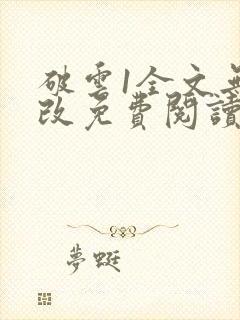 破雲1全文無
改免費閱讀
夢蜓